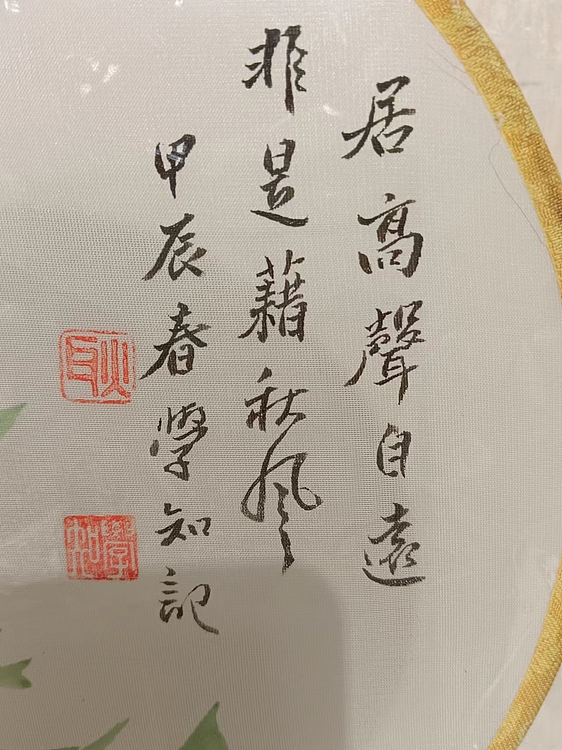 居高聲自遠
非是藉秋風
甲辰春學知記
耿
學知